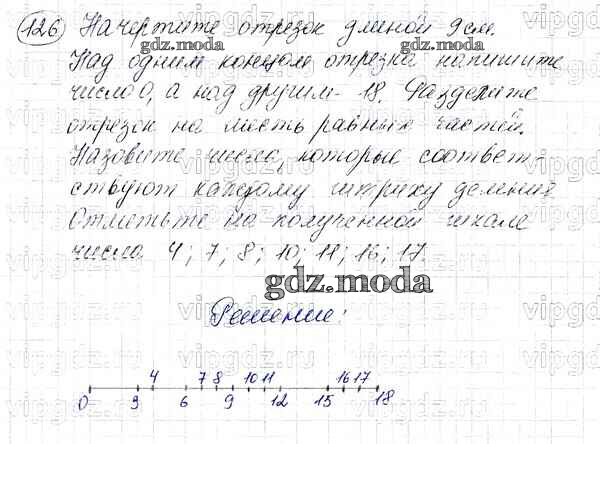 126 Начертите отрезок длиной 9 см.
Над одним концом отрезка напишите
число 0, а над другим - 18. Разделите
отрезок на шесть равных частей.
Назовите числа, которые соответ-
ствуют каждому штриху делений.
Отметьте на полученной шкале
числа 4; 7; 8; 10; 11; 16; 17.
gdz.moda
gdz.moda
gdz.moda
gdz.moda
Решение:
4 7 8 10 11 16 17
0 3 6 9 12 15 18
vipgdz.ru